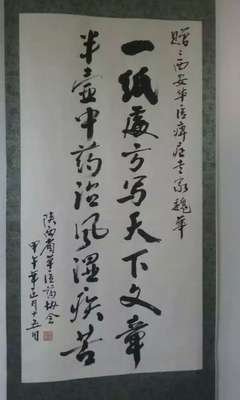 赠：西安华医痹症专家魏华
一纸处方写天下文章
半壶中药治风湿疾苦
陕西省华医药协会
甲午年正月十五日